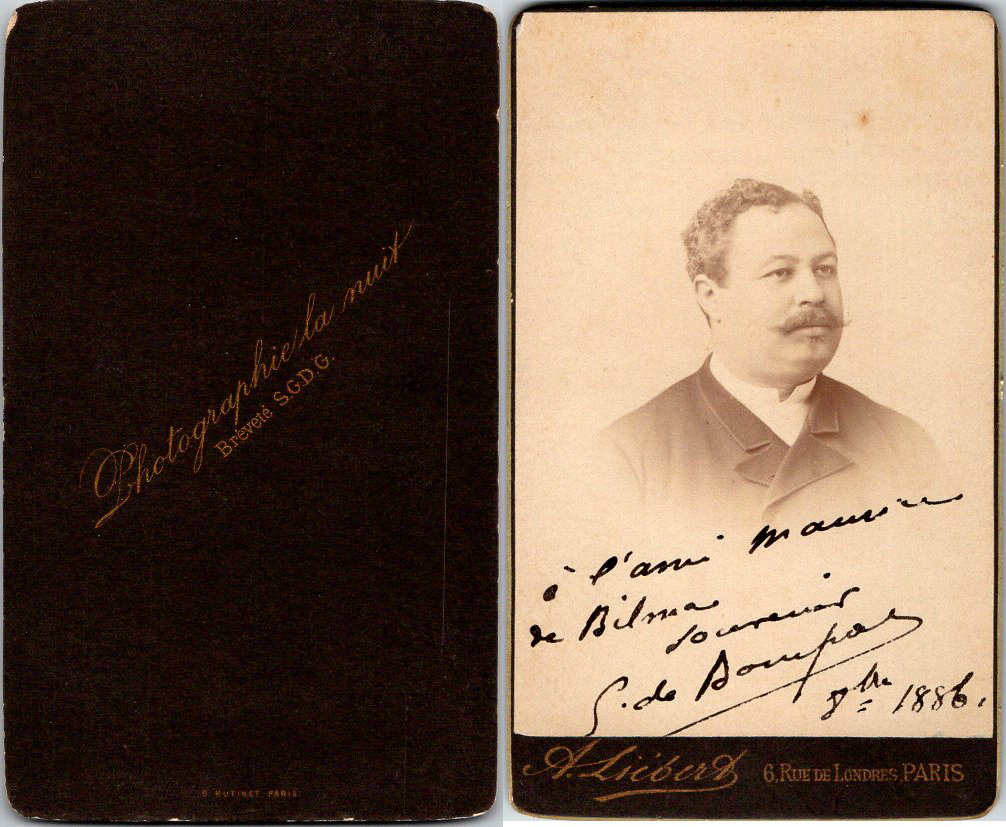 Photographie la nuit
Breveté S.G.D.G.
à l'ami Maurice
de Bilma
souvenir
G. de Bompar
8bre 1886.
A. Liébert 6, RUE DE LONDRES, PARIS